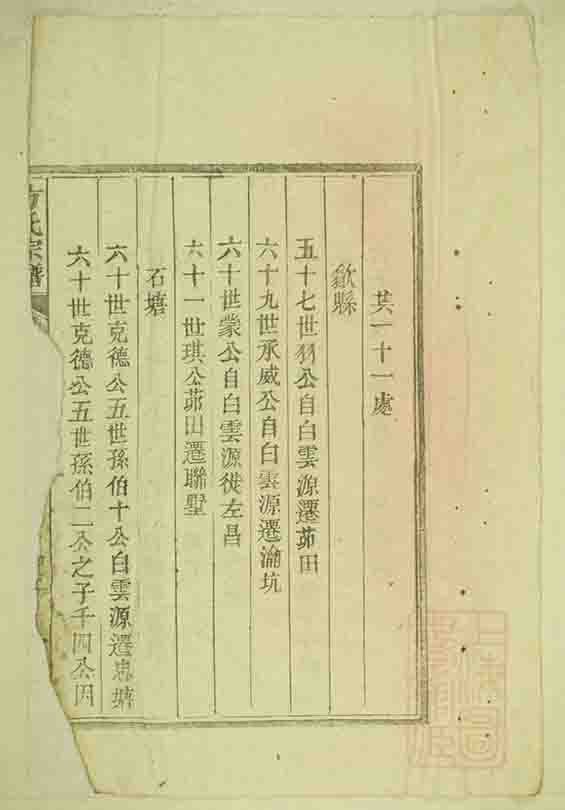 共一十一處
歙縣
五十七世羽公自白雲源遷茆田
六十九世承威公自白雲源遷瀹坑
六十世蒙公自白雲源徙左昌
六十一世琪公茆田遷聯墅
石塘
六十世克德公五世孫伯十公白雲源遷忠塘
六十世克德公五世孫伯二公之子千四公因
方氏宗譜